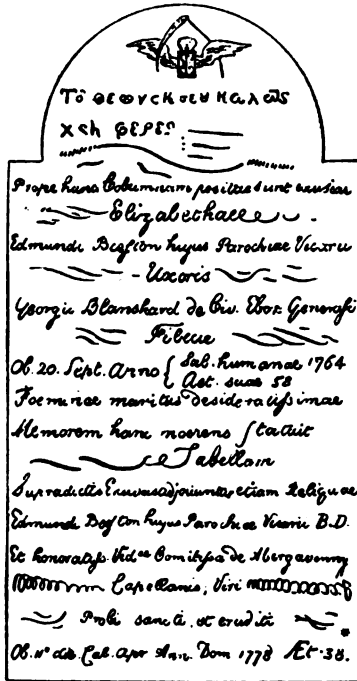 Τὸ ΘΕΦΝΣΚ ΣΕΥ ΚαΛΕΩΣ
ΧΣΗ ΦΕΡΕΣ
Prope hanc Columnam positae sunt exuviae
Elizabethae
Edmundi Boston hujus Parochiae Vicarii
Uxoris
Georgii Blanshard de Civ. Ebor. Generosi
Filiae
Ob. 20. Sept. Anno { Sal. humanae 1764
Aet. suae 58
Foeminae maritus desideratissimae
Memorem hanc moerens Statuit
Tabellam
Supradictis Exuviis adjiciuntur etiam Reliquiae
Edmundi Boston hujus Parochiae Vicarii B.D.
Et honoratiss. Vid ae Comitissa de Abergavenny
Capellanis, Viri
Probi sancti et eruditi
Ob. Apr Ann. Dom 1778 Æt. 38.